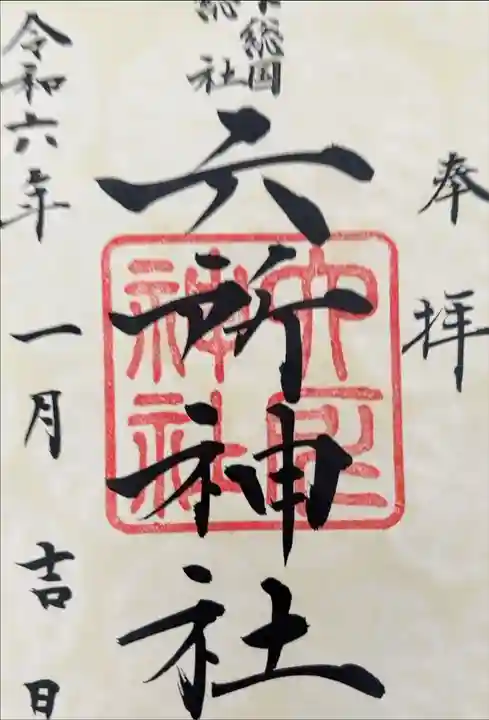 奉拝
総国
総社
六所神社
令和六年一月吉日
六所
神社